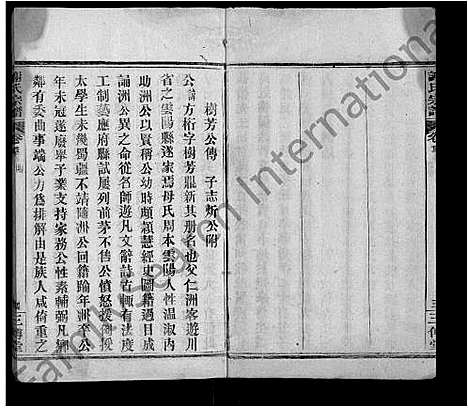 樹芳公傳 子志炘公附
公諱方桁字樹芳鼎新其册名也父仁洲客遊川
省之雲陽縣遂家焉母氏周本雲陽人性溫淑内
助洲公以賢稱公幼時頗頴慧經史圖籍過目成
誦洲公異之命從名師遊凡文辭詩省輒有法度
工制藝應府縣試屢列前茅不售公憤怒援例捐
太學生未幾蜀疆不靖隨洲公回籍踰年洲公
年未冠遂廢舉子業支持家務公性素輔弼凡鄉
鄰有委曲事端公力爲排解由是族人咸倚重之
Family Search International